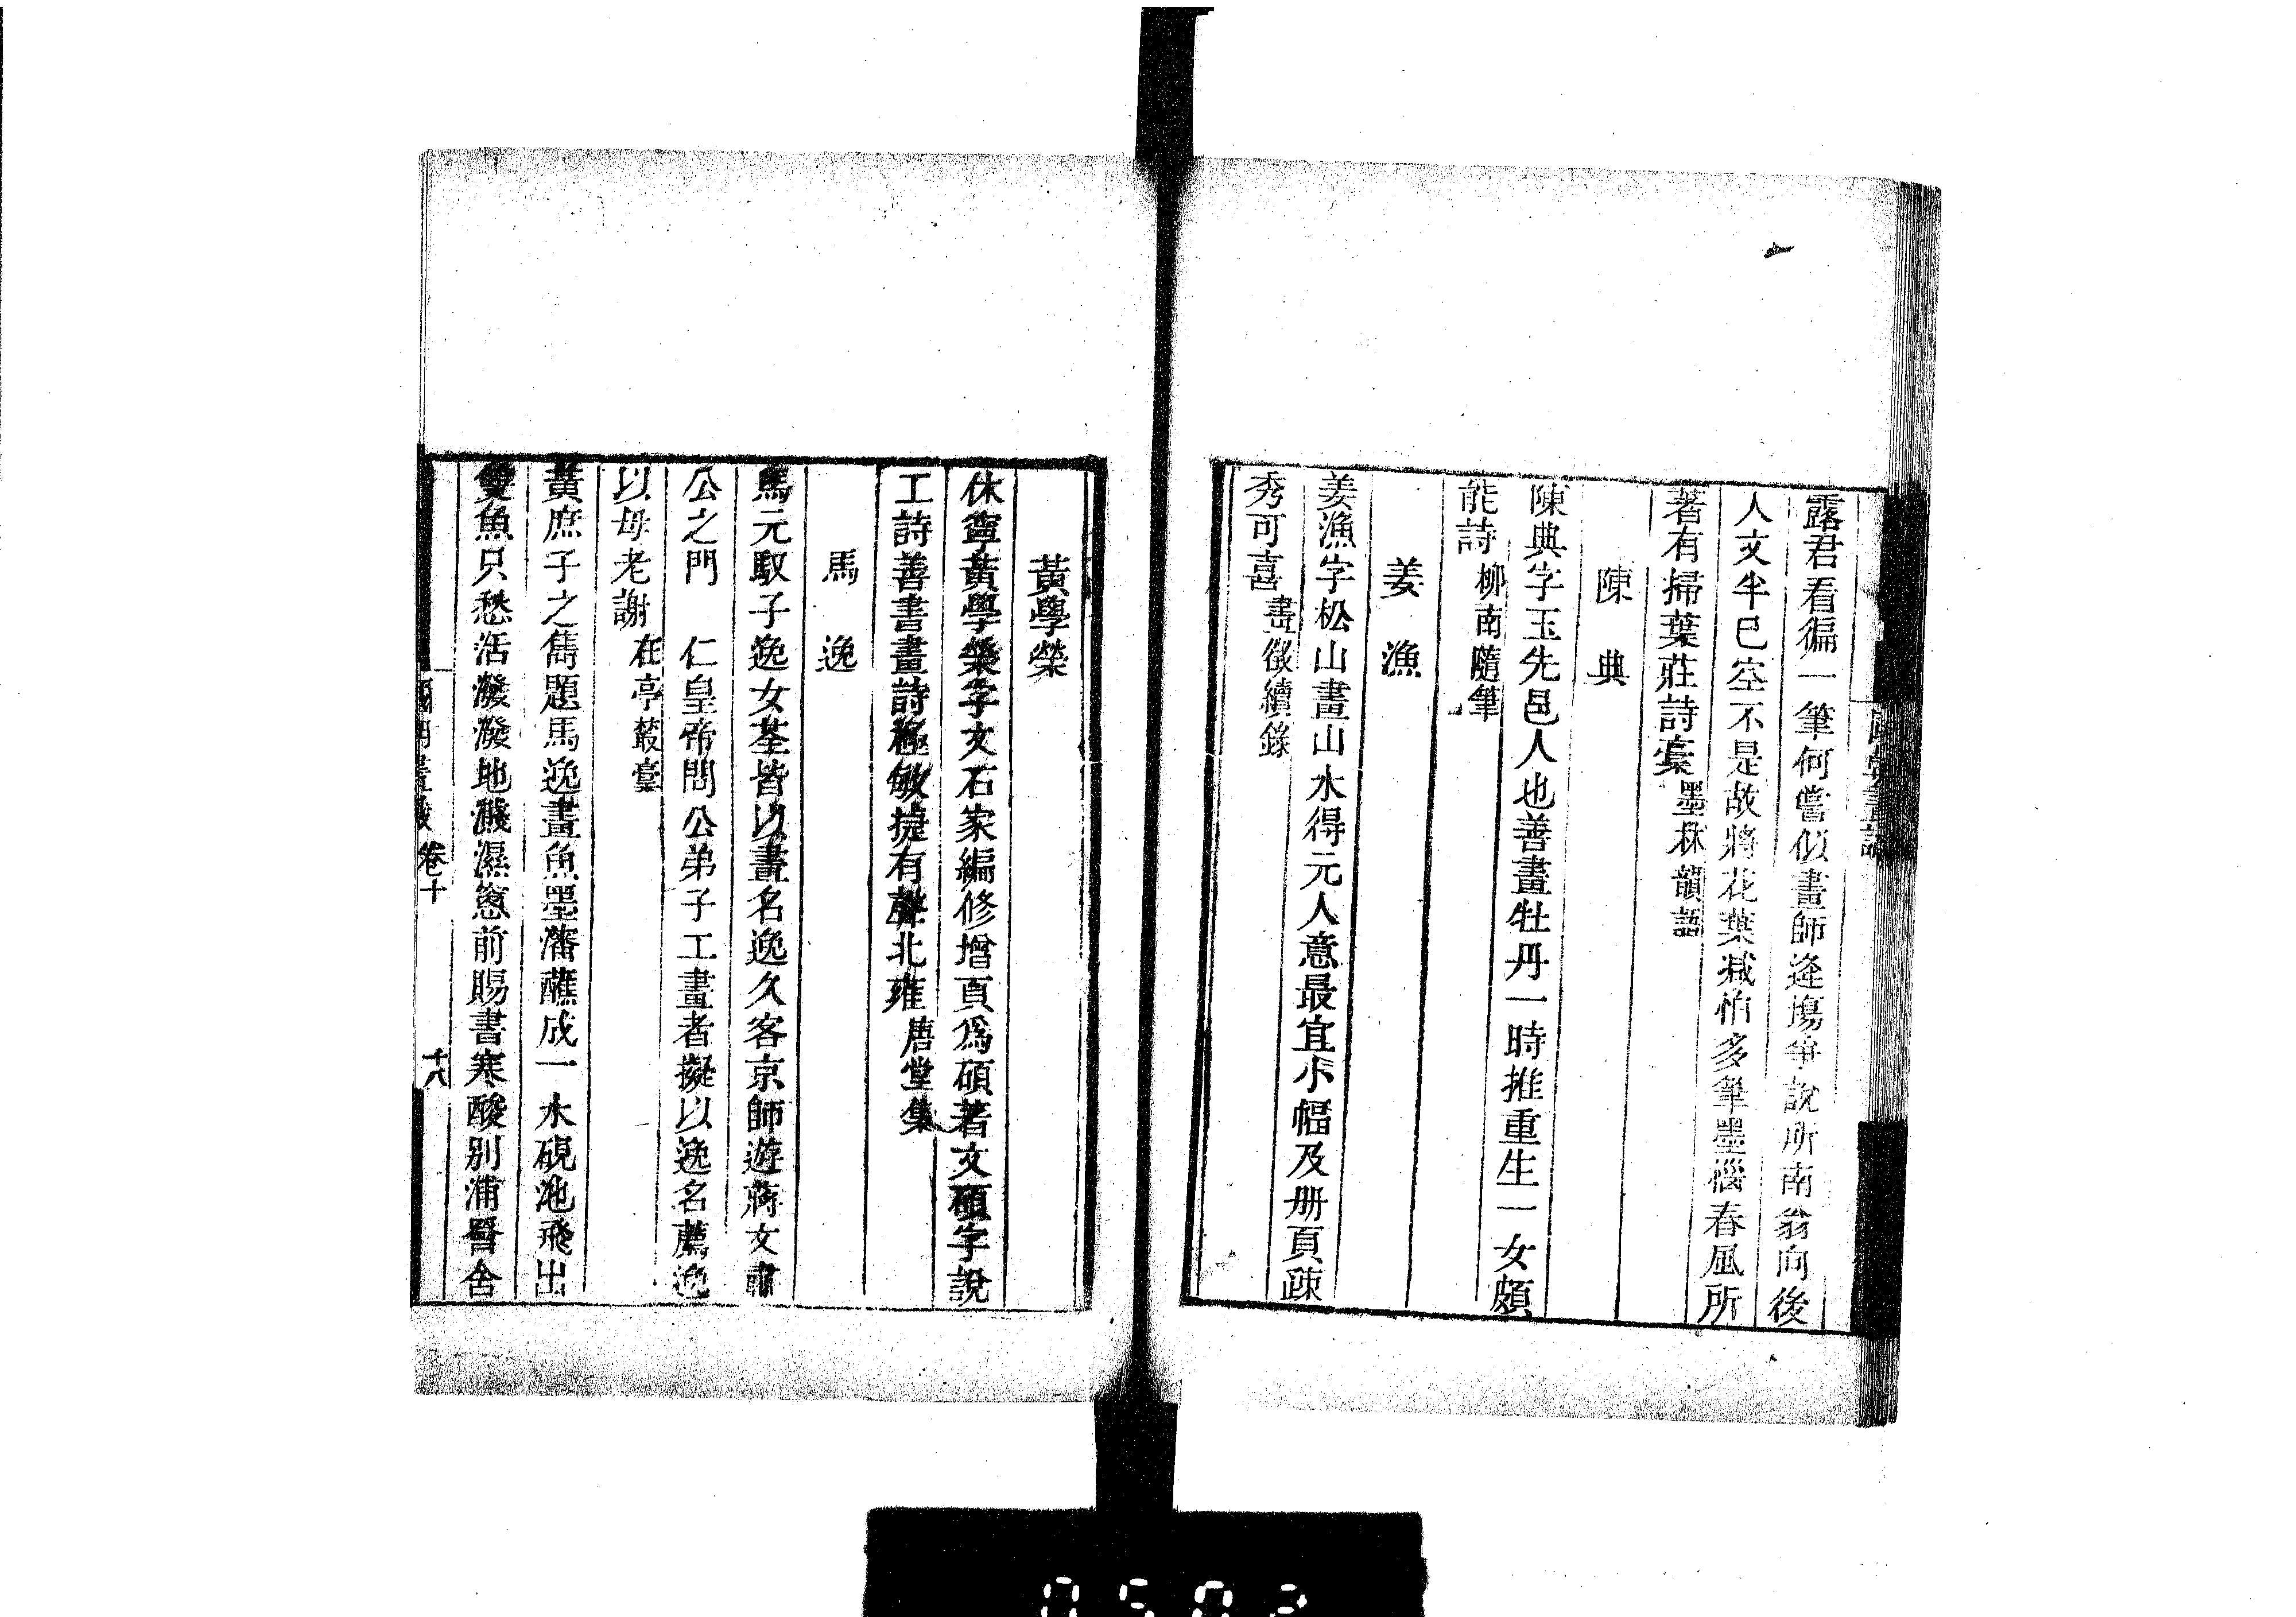 露君看徧一筆何嘗似畫師逢塲爭說所南翁向後
人文半已空不是故將花葉减怕多筆墨惱春風所
著有掃葉莊詩槀墨林韻語
陳典
陳典字玉先邑人也善畫牡丹一時推重生一女頗
能詩柳南隨筆
姜漁
姜漁字松山畫山水得元人意最宜小幅及册頁疎
秀可喜畫徵續錄
黃學榮
休寧黃學榮字文石家編修增頁爲碩著文碩字說
工詩善書畫詩極敏捷有聲北雍唐堂集
馬逸
馬元馭子逸女荃皆以畫名逸久客京師遊蔣文肅
公之門 仁皇帝問公弟子工畫者擬以逸名薦逸
以母老謝在亭叢槀
黃庶子之雋題馬逸畫魚墨瀋蘸成一水硯池飛出
雙魚只愁活潑潑地濺濕窻前賜書寒酸别浦曾舍
卷十
十八
0502